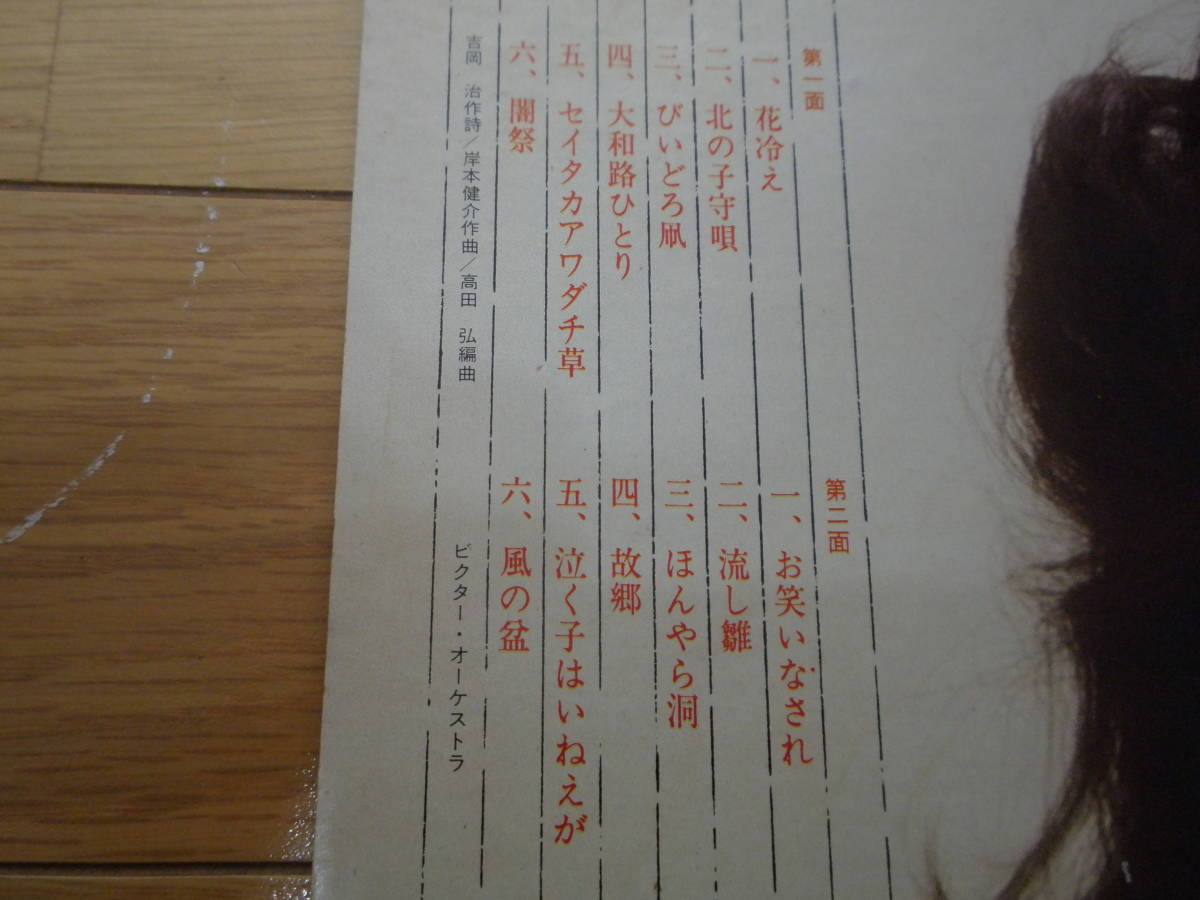 第一面
一、花冷え
二、北の子守唄
三、びいどろ凧
四、大和路ひとり
五、セイタカアワダチ草
六、闇祭
第二面
一、お笑いなされ
二、流し雛
三、ほんやら洞
四、故郷
五、泣く子はいねえが
六、風の盆
吉岡 治作詩/岸本健介作曲/高田 弘編曲
ビクター・オーケストラ